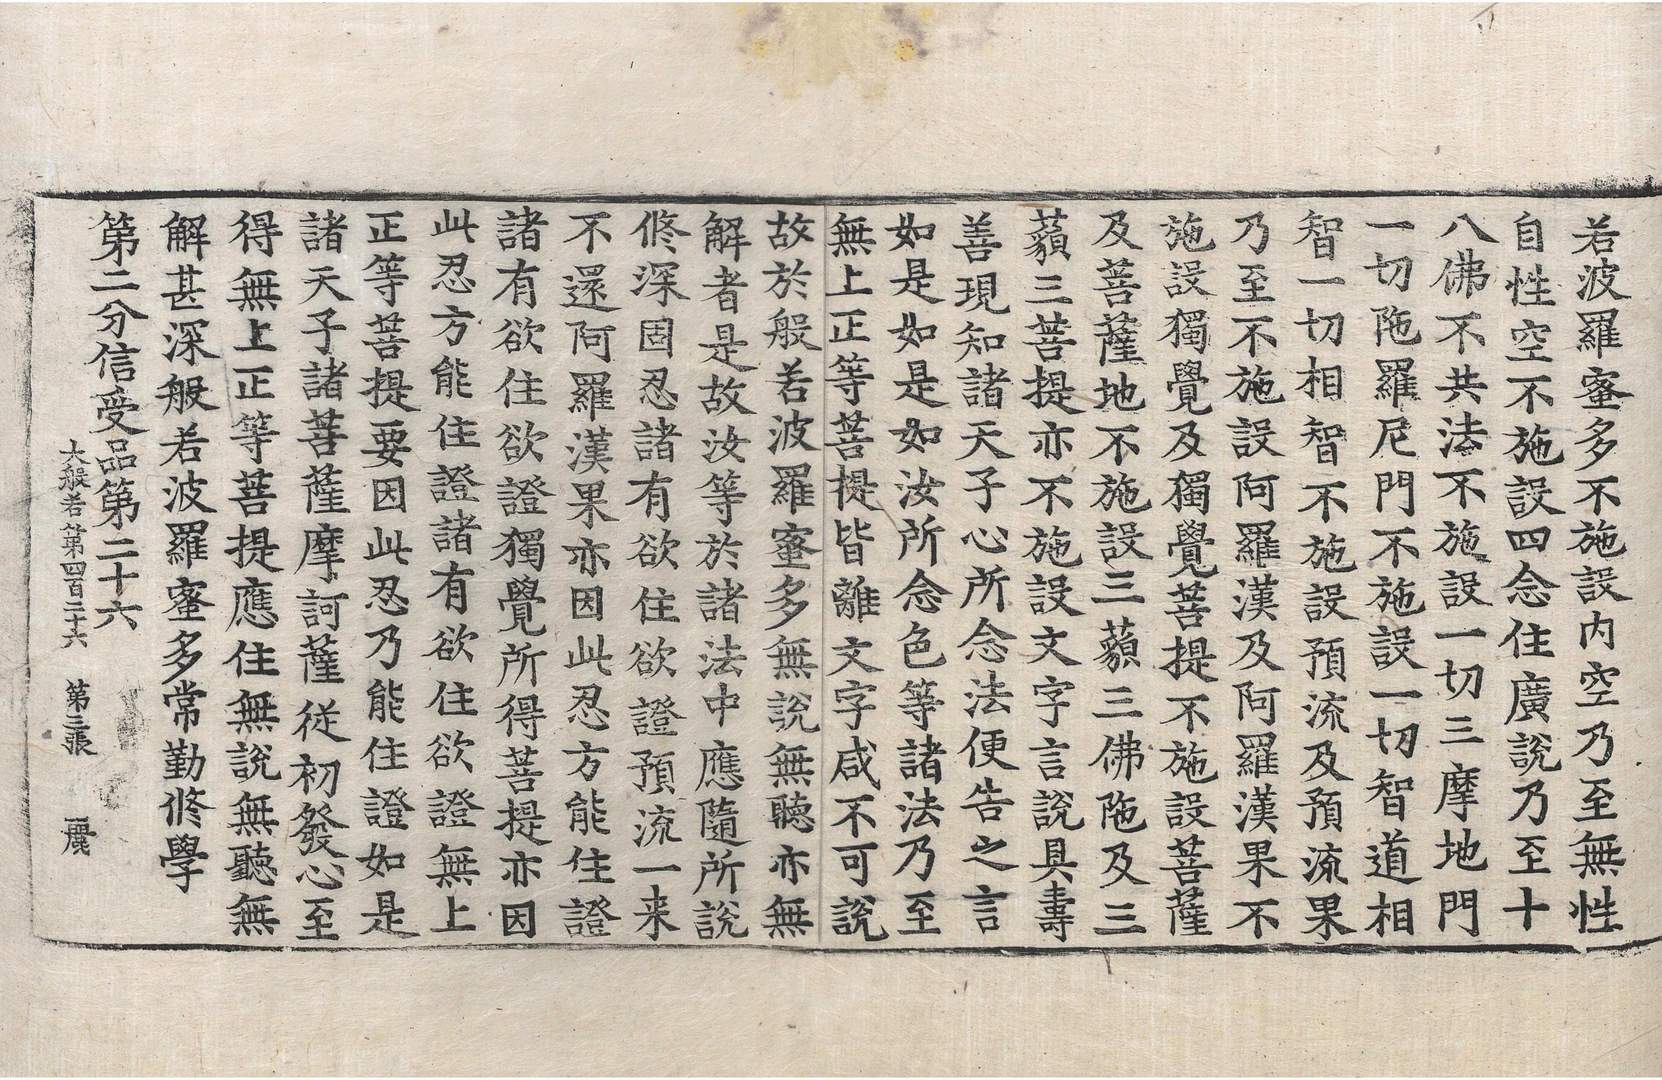 若波羅蜜多不施設内空乃至無性
自性空不施設四念住廣說乃至十
八佛不共法不施設一切三摩地門
一切陁羅尼門不施設一切智道相
智一切相智不施設預流及預流果
乃至不施設阿羅漢及阿羅漢果不
施設獨覺及獨覺菩提不施設菩薩
及菩薩地不施設三藐三佛陁及三
藐三菩提亦不施設文字言說具壽
善現知諸天子心所念法便告之言
如是如是如汝所念色等諸法乃至
無上正等菩提皆離文字咸不可說
故於般若波羅蜜多無說無聽亦無
解者是故汝等於諸法中應隨所說
修深固忍諸有欲住欲證預流一来
不還阿羅漢果亦因此忍方能住證
諸有欲住欲證獨覺所得菩提亦因
此忍方能住證諸有欲住欲證無上
正等菩提要因此忍乃能住證如是
諸天子諸菩薩摩訶薩從初發心至
得無上正等菩提應住無說無聽無
解甚深般若波羅蜜多常勤修學
第二分信受品第二十六
大般若第四百二十六 第三張 麗